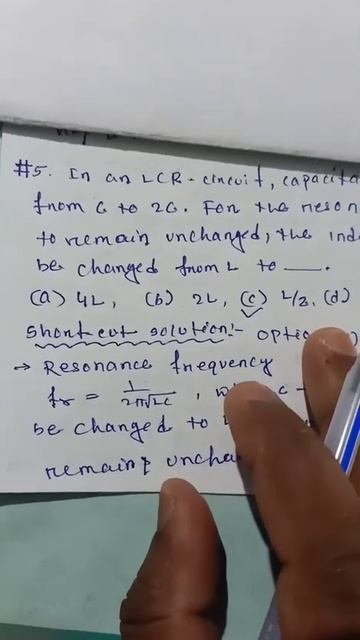 #5. In an LCR-circuit, capacita
from C to 2C. For the reson
to remain unchanged, the ind
be changed from L to ___.
(a) 4L, (b) 2L, (c) L/2, (d)
Shortcut solution:- optio
→ Resonance frequency
fr = 1/2π√LC , C
be changed to
remain uncha